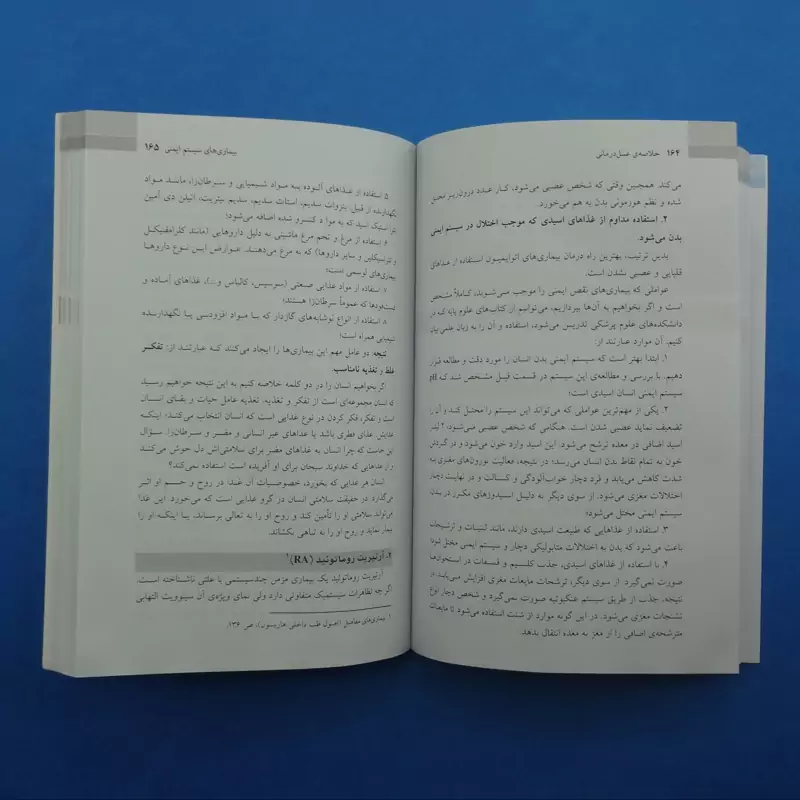 ۱۶۴ خلاصه‌ی عسل‌درمانی
می‌کند همچنین وقتی که شخص عصبی می‌شود، کار غدد درون‌ریز مختل
شده و نظم هورمونی بدن به هم می‌خورد.
۲. استفاده مداوم از غذاهای اسیدی که موجب اختلال در سیستم ایمنی
بدن می‌شود.
بدین ترتیب، بهترین راه درمان بیماری‌های اتوایمیون استفاده از غذاهای
قلیایی و عصبی نشدن است.
عواملی که بیماری‌های نقص ایمنی را موجب می‌شوند، کاملاً مشخص
است و اگر بخواهیم به آن‌ها بپردازیم، می‌توانیم از کتاب‌های علوم پایه که در
دانشکده‌های علوم پزشکی تدریس می‌شود، استفاده و آن را به زبان علمی بیان
کنیم. آن موارد عبارتند از:
۱. ابتدا بهتر است که سیستم ایمنی بدن انسان را مورد دقت و مطالعه قرار
دهیم. با بررسی و مطالعه‌ی این سیستم در قسمت قبل مشخص شد که pH
سیستم ایمنی انسان اسیدی است؛
۲. یکی از مهم‌ترین عواملی که می‌تواند این سیستم را مختل کند و آن را
تضعیف نماید عصبی شدن است. هنگامی که شخص عصبی می‌شود، ۲ لیتر
اسید اضافی در معده ترشح می‌شود. این اسید وارد خون می‌شود و در گردش
خون به تمام نقاط بدن انسان می‌رسد؛ در نتیجه، فعالیت نورون‌های مغزی به
شدت کاهش می‌یابد و فرد دچار خواب‌آلودگی و کسالت و در نهایت دچار
اختلالات مغزی می‌شود. از سوی دیگر به دلیل اسیدوزهای مکرر در بدن،
سیستم ایمنی مختل می‌شود؛
۳. استفاده از غذاهایی که طبیعت اسیدی دارند، مانند لبنیات و ترشیجات
باعث می‌شود که بدن به اختلالات متابولیکی دچار و سیستم ایمنی مختل شود؛
۴. با استفاده از غذاهای اسیدی، جذب کلسیم و فسفات در استخوان‌ها
صورت نمی‌گیرد. از سوی دیگر، ترشحات مایعات مغزی افزایش می‌یابد. در
نتیجه، جذب از طریق سیستم عنکبوتیه صورت نمی‌گیرد و شخص دچار انواع
تشنجات مغزی می‌شود. در این گونه موارد از شنت استفاده می‌شود تا مایعات
مترشحه‌ی اضافی را از مغز به معده انتقال بدهد.
بیماری‌های سیستم ایمنی ۱۶۵
۵. استفاده از غذاهای آلوده به مواد شیمیایی و سرطان‌زا، مانند مواد
نگهدارنده از قبیل: بنزوات سدیم، استات سدیم، سدیم نیتریت، اتیلن دی آمین
تتراستیک اسید که به مواد کنسرو شده اضافه می‌شود؛
۶. استفاده از مرغ و تخم مرغ ماشینی به دلیل داروهایی (مانند کلرامفنیکل
و تتراسیکلین و سایر داروها) که به مرغ می‌دهند. عوارض این نوع داروها
بیماری‌های لوسمی است؛
۷. استفاده از مواد غذایی صنعتی (سوسیس، کالباس و...)، غذاهای آماده و
فست‌فودها که عموماً سرطان‌زا هستند؛
۸. استفاده از انواع نوشابه‌های گازدار که با مواد افزودنی یا نگهدارنده
شیمیایی همراه است؛
نتیجه: دو عامل مهم این بیماری‌ها را ایجاد می‌کنند که عبارتند از: تفکر
غلط و تغذیه نامناسب.
اگر بخواهیم انسان را در دو کلمه خلاصه کنیم به این نتیجه خواهیم رسید
که انسان مجموعه‌ای است از تفکر و تغذیه. تغذیه عامل حیات و بقای انسان
است و تفکر، فکر کردن در نوع غذایی است که انسان انتخاب می‌کند؛ اینکه
غذایش غذای فطری باشد یا غذاهای غیر انسانی و مضر و سرطان‌زا. سؤال
این جاست که چرا انسان به غذاهای مضر برای سلامتی‌اش دل خوش می‌کند
و از غذاهایی که خداوند سبحان برای او آفریده است استفاده نمی‌کند؟
انسان هر غذایی که بخورد، خصوصیات آن غذا در روح و جسم او اثر
می‌گذارد. در حقیقت سلامتی انسان در گرو غذایی است که می‌خورد. این غذا
می‌تواند سلامتی او را تأمین کند و روح او را به تعالی برساند، یا اینکه او را
بیمار نماید و روح او را به تباهی بکشاند.
۲. آرتریت روماتوئید (RA)۱
آرتریت روماتوئید یک بیماری مزمن چندسیستمی با علتی ناشناخته است.
اگر چه تظاهرات سیستمیک متفاوتی دارد ولی نمای ویژه‌ی آن سینوویت التهابی
۱. بیماری‌های مفاصل (اصول طب داخلی هاریسون)، ص ۱۳۶.